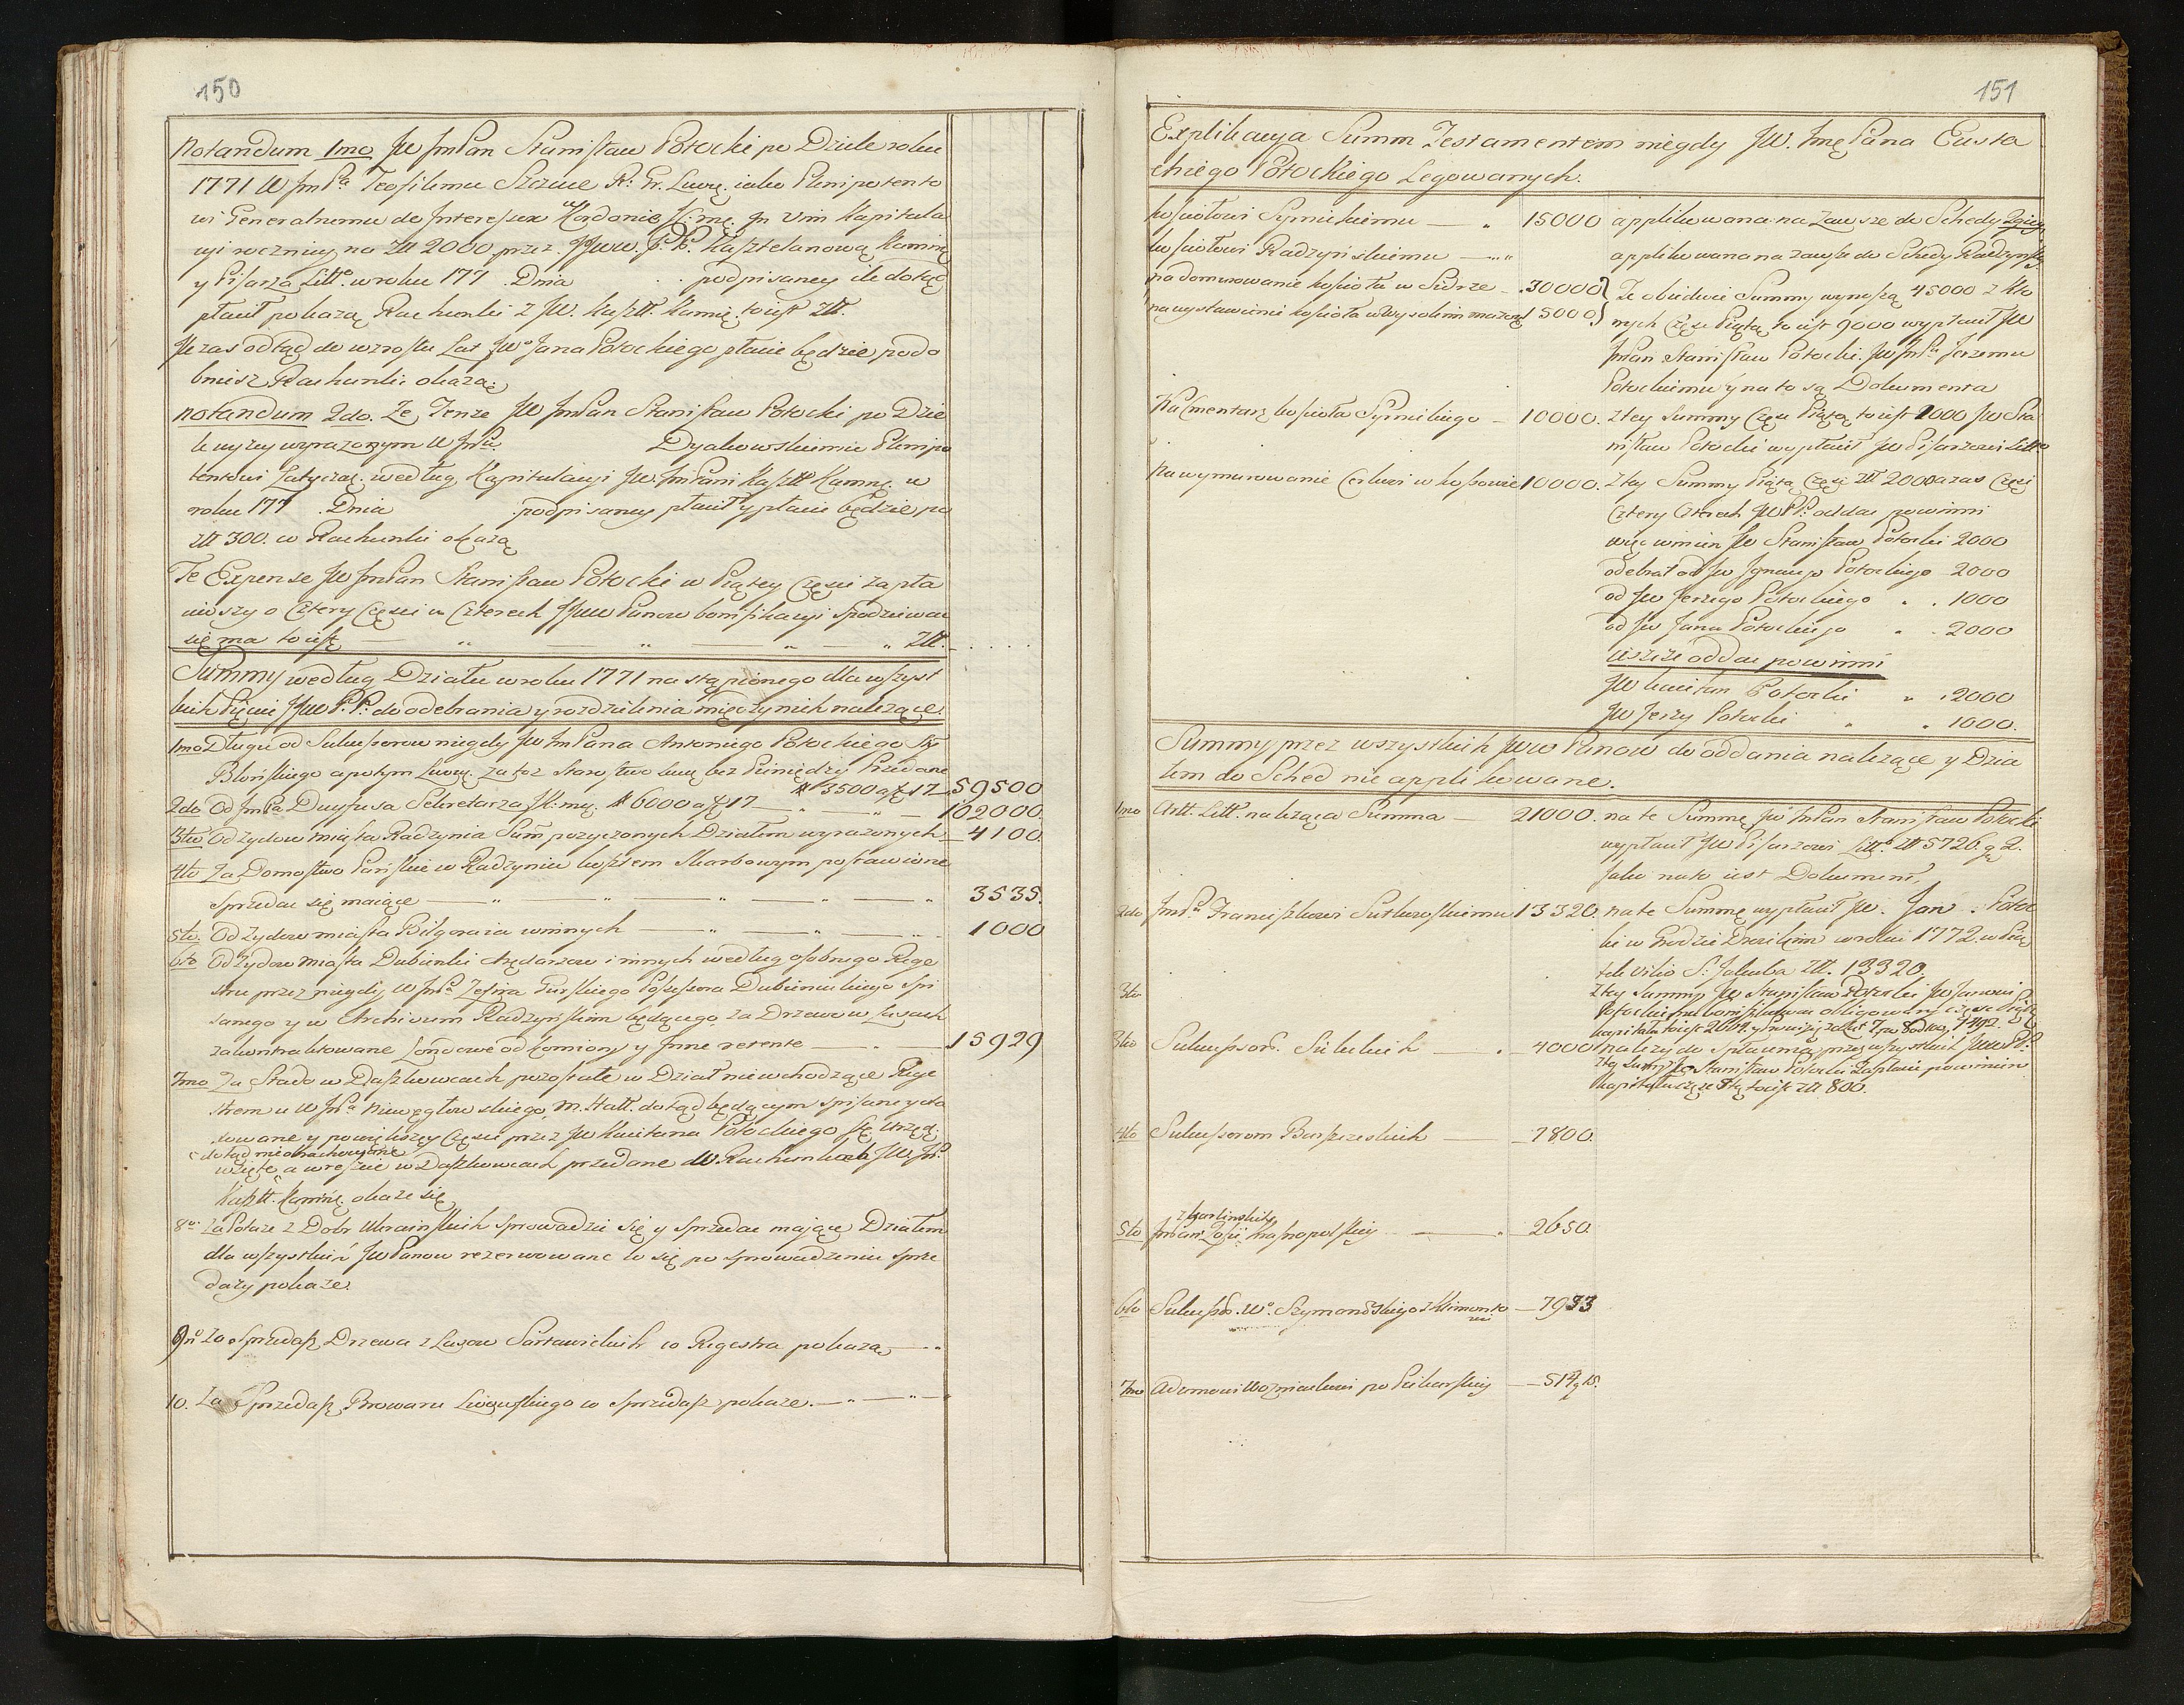 150
Notandum 1mo JW JmPan Stanisław Potocki po Dziele roku
1771 W JmPa Teofilemu Szczuce R: Gr. Lwow. iako Plenipotento
wi Generalnemu do Interessów w Kordonie in vim Kapitula
cyi roczniey na Złł 2000 przez JJWW. P.P. Kasztelanową Kamiń
y Pisarza Litto w roku 177 . Dnia . . podpisaney ile dotąd
płacił pokażą Rachunki z JW. Kasztt. Kamiń. to iest Złł.
Ile zas odtąd do wzrostu Lat JWo Jana Potockiego płacić będzie podo
bniesz Rachunki okażą.
Notandum 2do. Że Tenże JW JmPan Stanisław Potocki po Dzie
le wyżey wyrażonym W JmPu Dyakowskiemu Plenipo
tentowi według Kapitulacyi JW. JmPani Kasztt Kamiń. w
roku 177 . Dnia . podpisaney płacił y płacić będzie po
Złł 300. co Rachunki okażą
Te Expense JW JmPan Stanisław Potocki w Piątey Częsci zapła
ciwszy o Cztery Częsci u Czterech JJWW Panow bonifikacyi spodziewac
się ma to iest — „ — „ — „ — „ Złł. . . . .
Summy według Działu w roku 1771 nastąpionego dla wszyst
kich Pięciu JJWW P.P. do odebrania y rozdzielenia między nich należące.
1mo Długu od Sukcessorow niegdy JW JmPana Antoniego Potockiego Sty
Błońskiego a potym Lwow. za toż Starostwo bez Pieniędzy Przedane
# 3500 a f 17 — 59500
2do Od JmPa Duyfusa Sekretarza JK: mci. # 6000 a f 17 — „ — „ — 102000.
3tio Od Zydow miasta Radzynia Sum̄ pożyczonych Działem wyrażonych — 4100.
4to Za Domostwo Pańskie w Radzyniu kosztem Skarbowym postawione
Sprzedac się maiące — „ — „ — „ — „ — „ 3535.
5to. Od Zydow miasta Biłgoraia winnych — „ — „ — „ 1000
6to Od Zydow miasta Dubienki Arędarzow i innych według osobnego Rege
stru przez niegdy W JmPa Jozefa Turskiego Possessora Dubienieckiego Spi
sanego y w Archivum Radzyńskim będącego, za Drzewo w Lasach
zakontraktowane Londowe od komiony y Inne retente — „ — 15929
7mo Za Stado w Daszkowcach pozostałe w Dział nie wchodzące Rege
strem u W JPa Niewęgłowskiego, M. Statt. dotąd będącym spisane y
towane y powiększey Częsci przez JW Kaietana Potockiego Stę Urzęd.
dotąd nie obrachowane
wzięte a w reszcie w Daszkowcach przedane W. Rachunkach JW. JP.
Kasztt. Kamiń. okaże się
8vo Za Potaże z Dobr Ukrainskich Sprowadzic się y Sprzedac maiące Działem
dla wszystkich JW Panow rezerwowane co się po sprowadzeniu sprze
daży pokaże.
9no Za Sprzedasz Drzewa z Lasow co Regestra pokażą — „
10. Za Sprzedasz Browaru co Sprzedasz pokaże. — „ —
151
Explikacya Summ Testamentem niegdy JW. Jmę Pana Eusta
chiego Potockiego Legowanych.
Kosciołowi Syrnickiemu — „ 15000 applikowana na zawsze do Schedy
Kosciołowi Radzyńskiemu — „ „ applikowana na zawsze do Schedy Radzyńsk
na domurowanie koscioła w Sidrze — . 30000 } Ze obudwie Summy wynoszą 45000 z Kto
na wystawienie koscioła w Wysokim 15000 } rych Częsc Piątą to iest 9000 wypłacił JW
JmPan Stanisław Potocki. JW JmPu Jerzemu
Potockiemu y na to są Dokumenta
Na Cmentarz koscioła Syrnickiego — 10000. z tey Summy Częsc Piątą to iest 2000 JW Sta
nisław Potocki wypłacił JW Pisarzowi Litto
Na wymurowanie Cerkwi w Kosowie 10000. z tey Summy Piątą Częsc Złł 2000 a zas Częsci
Cztery Czterech JWPP. oddac powinni
więc winien JW Stanisław Potocki 2000
odebrał od JW Ignacego Potockiego 2000
od JW Jerzego Potockiego . . 1000
od JW Jana Potockiego „ . 2000
Ieszcze oddac powinni
JW Kaietan Potocki „ . 2000
JW Jerzy Potocki „ . 1000.
Summy przez wszystkich JWW Panow do oddania należące y Dzia
łem do Sched nie applikowane.
1mo Artt. Litt. należąca Summa — 21000. na te Summę JW JmPan Stanisław Potocki
wypłacił JW Pisarzowi Litto. Złł 5726. g 2.
Jako na to iest Dokument.
2do JmPu Franciszkowi Sutkowskiemu 13320. na te Summę wypłacił JW. Jan . Potoc
ki w Grodzie w roku 1772. w Pią
tek Vilio S: Jakuba Złł. 13320.
3tio z tey Summy JW Stanisław Potocki JW Janowi
Potockiemu bonifikowac obligowany częsc Piątą
kapitału to iest 2664. y prowizyą
3tio Sukcessor. Siekluckich — „ — 4000 należy do spłacenia przez wszystkich JWW PP.
z tey Summy JW Stanisław Potocki zapłacic powinien
kapitału częsc 5tą to iest Złł 800.
4to Sukcessorom Barszczeskich — — 7800.
5to JmPan. Zofii z Karlinskich — „ 2650.
6to Sukcess. Wo. Szymanowskiego z Klimonto
wa — 7933
7mo Adamowi Wozniakowi po — — 514 g 15.